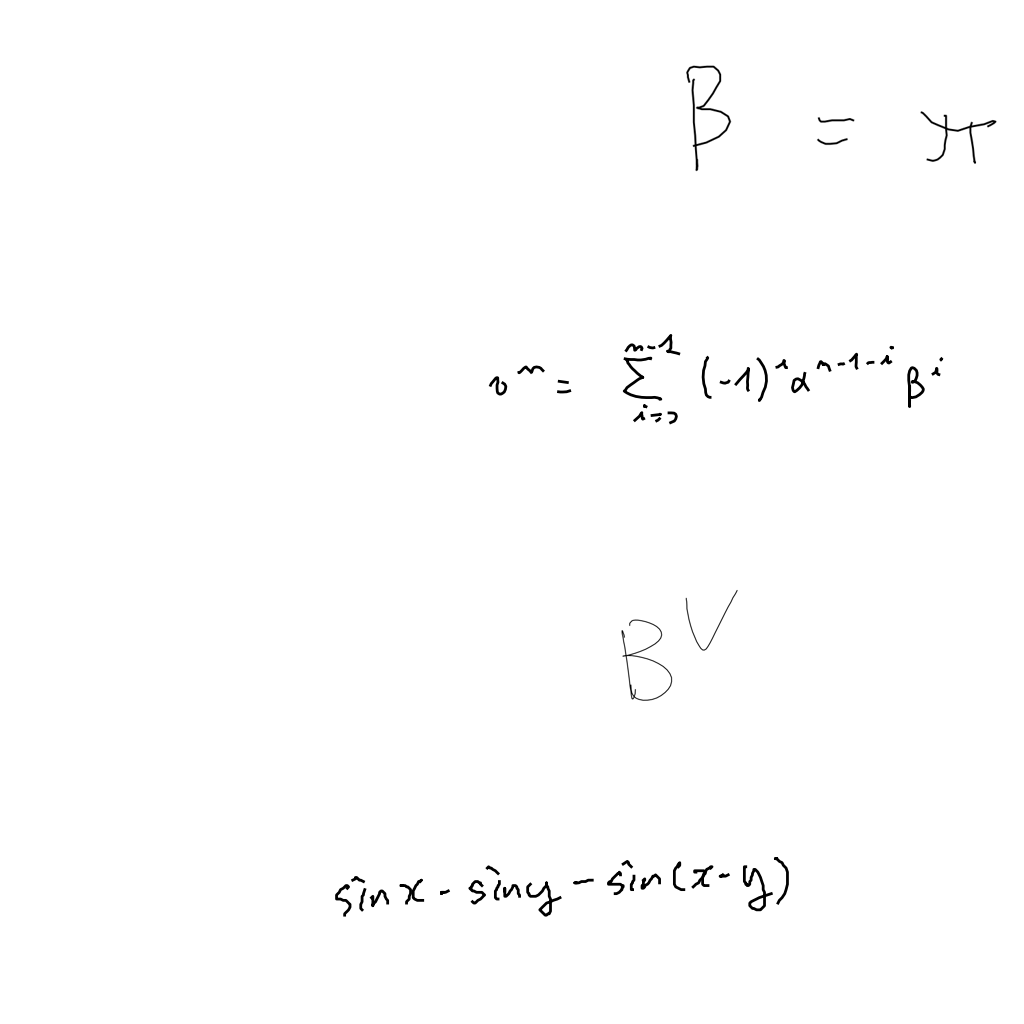 β = π
v^n = \sum_{i=0}^{n-1} (-1)^i α^{n-1-i} β^i
B^V
sin x - sin y - sin(x-y)